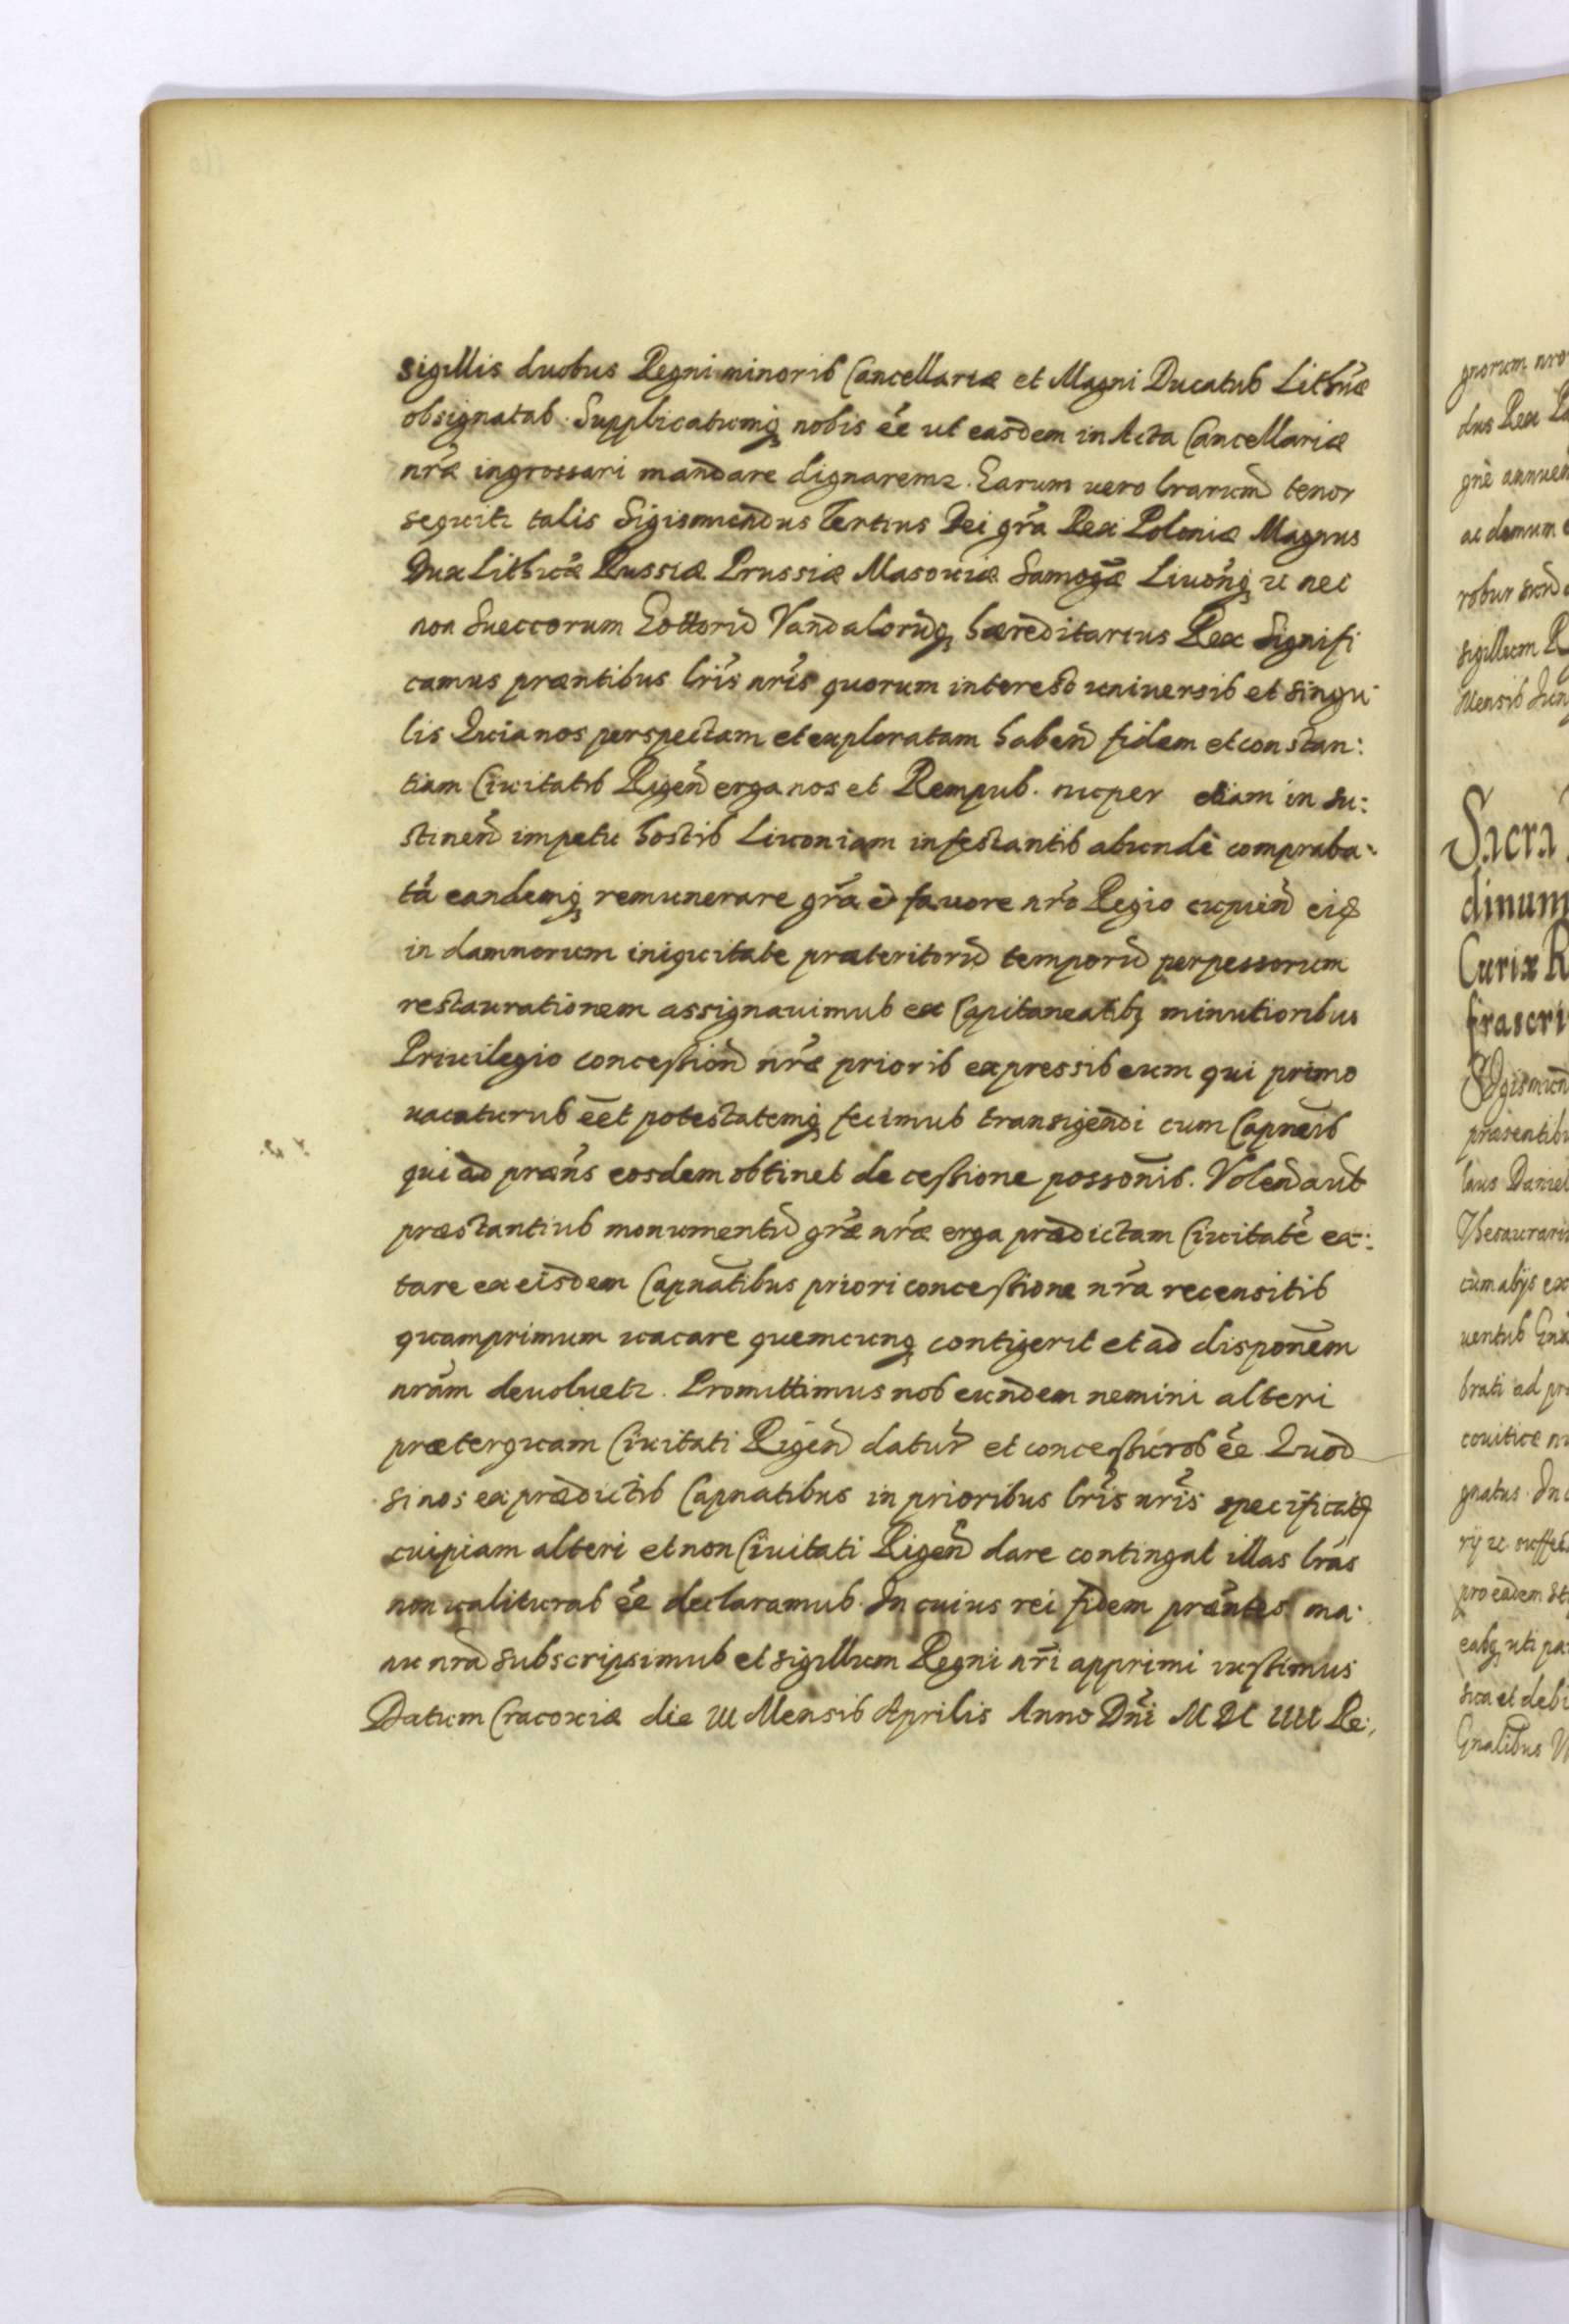 sigillis duobus Regni minoris Cancellariæ et Magni Ducatus Lithũæ
obsignatas. Supplicatumq nobis ẽe ut easdem in Acta Cancellariæ
nrã ingrossari mandare dignaremz. Earum uero lrarum tenor
sequitz talis Sigismundus Tertius Dei grã Rex Poloniæ Magnus
Dux Lithuæ Russiæ Prussiæ Masouiæ Samogæ Liuonq zc nec
non Sueccorum Gottorũ Vandalorũq hæreditarius Rex Signifi
camus præntibus lrĩs nrĩs quorum interest uniuersis et singu:
lis Quia nos perspectam et exploratam haben fidem et constan:
tiam Ciuitatis Rigen erga nos et Rempub. nuper etiam in su:
stinen impetu hostis Liuoniam infestantis abundè compraba:
tá eandemq remunerare grã è fauore nrõ Regio cupien eiq
in damnorum iniquitate præteritorũ temporũ perpessorum
restaurationem assignauimus ex Capitaneatibz minutioribus
Priuilegio concession nrẽ prioris expressis eum qui primo
uacaturus ẽet potestatemq fecimus transigendi cum Capneis
qui ad præns eosdem obtinet de cessione possonis. Volen aut
præstantius monumentũ græ nræ erga prædictam Ciuitatẽ ex:
tare ex eisdem Capnatibus priori concessione nrã recensitis
quamprimum uacare quemcunq contigerit et ad disponem
nrãm deuoluetz. Promittimus nos eundem nemini alteri
præterquam Ciuitati Rigen datur et concessuros ẽe Quod
si nos ex prædictis Capnatibus in prioribus lrĩs nrĩs specificatq
cuipiam alteri et non Ciuitati Rigen dare contingat illas lrãs
non ualituras ẽe declaramus. In cuius rei fidem præntes ma:
nu nrã subscripsimus et sigillum Regni nrĩ apprimi iussimus
Datum Cracouiæ die III Mensis Aprilis Anno Dñi Re:
gnorum nro
dus Rex
ac demum
robur
sigillum R
Mensis Jun
Sacra
dinum
Curiæ R
frascri
Sigismun
præsentib
laus Daniel
Thesaurari
cum alijs ex
brati ad pr
gnatus. In
pro eadem
eabq uti pa
sua et debi
Gnalibus